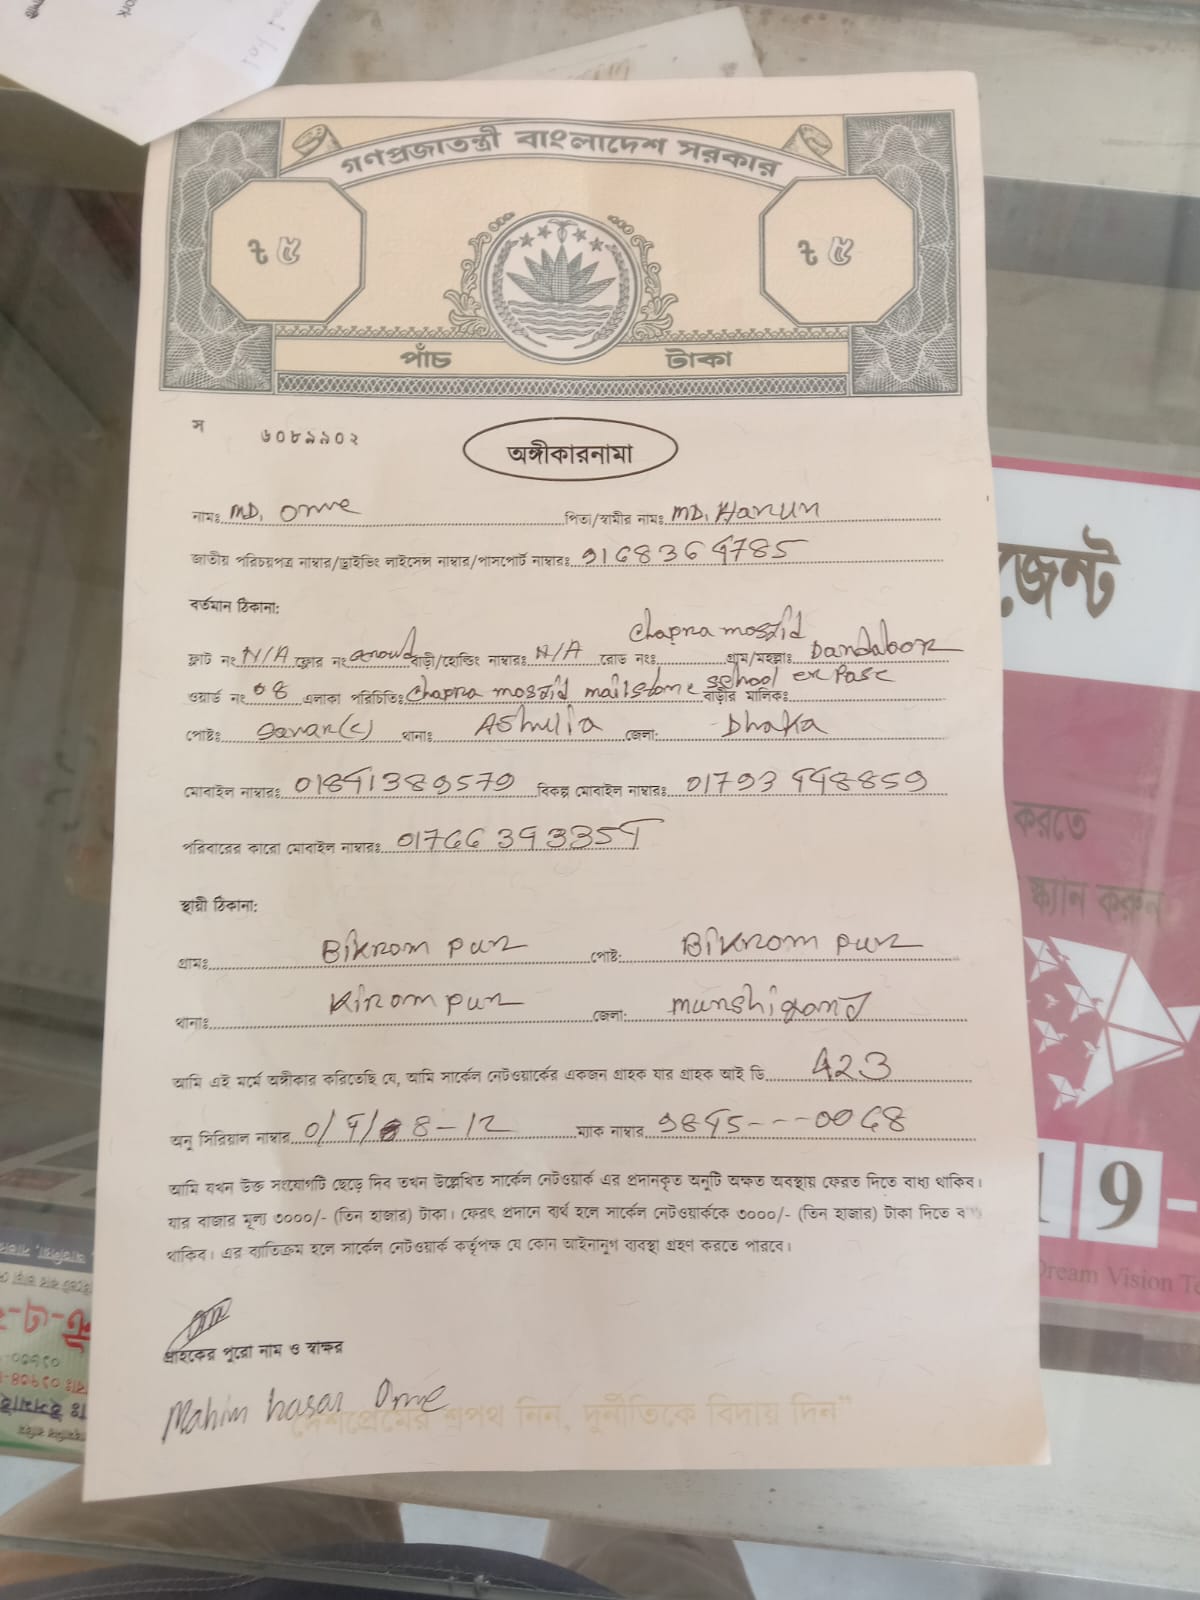 গণপ্রজাতন্ত্রী বাংলাদেশ সরকার
৳ ৫ ৳ ৫
পাঁচ টাকা
স ৬০৮৯৯০২
অঙ্গীকারনামা
নামঃ MD, Ome পিতা/স্বামীর নামঃ MD, Harun
জাতীয় পরিচয়পত্র নাম্বার/ড্রাইভিং লাইসেন্স নাম্বার/পাসপোর্ট নাম্বারঃ 9168364785
বর্তমান ঠিকানা:
Chapra moszid
ফ্লাট নং N/A ফ্লোর নং বাড়ী/হোল্ডিং নাম্বারঃ N/A রোড নংঃ গ্রাম/মহল্লাঃ Dandaboor
ওয়ার্ড নং 08 এলাকা পরিচিতিঃ Chapra moszid mailstome school er Pase বাড়ীর মালিকঃ
পোষ্টঃ Savar(c) থানাঃ Ashulia জেলা: Dhaka
মোবাইল নাম্বারঃ 01841389579 বিকল্প মোবাইল নাম্বারঃ 01793448859
পরিবারের কারো মোবাইল নাম্বারঃ 01766393354
স্থায়ী ঠিকানা:
গ্রামঃ Bikrom pur পোষ্ট: Bikrom pur
থানাঃ Kirompur জেলা: munshigonj
আমি এই মর্মে অঙ্গীকার করিতেছি যে, আমি সার্কেল নেটওয়ার্কের একজন গ্রাহক যার গ্রাহক আই ডি 423
অনু সিরিয়াল নাম্বার 0/4/8-12 ম্যাক নাম্বার 9845---0068
আমি যখন উক্ত সংযোগটি ছেড়ে দিব তখন উল্লেখিত সার্কেল নেটওয়ার্ক এর প্রদানকৃত অনুটি অক্ষত অবস্থায় ফেরত দিতে বাধ্য থাকিব।
যার বাজার মূল্য ৩০০০/- (তিন হাজার) টাকা। ফেরৎ প্রদানে ব্যর্থ হলে সার্কেল নেটওয়ার্ককে ৩০০০/- (তিন হাজার) টাকা দিতে
থাকিব। এর ব্যতিক্রম হলে সার্কেল নেটওয়ার্ক কর্তৃপক্ষ যে কোন আইনানুগ ব্যবস্থা গ্রহণ করতে পারবে।
গ্রাহকের পুরো নাম ও স্বাক্ষর
Mahim hasan Ome
"দেশপ্রেমের শপথ নিন, দুর্নীতিকে বিদায় দিন"
জেন্ট
করতে
স্ক্যান করুন
19-
Dream Vision